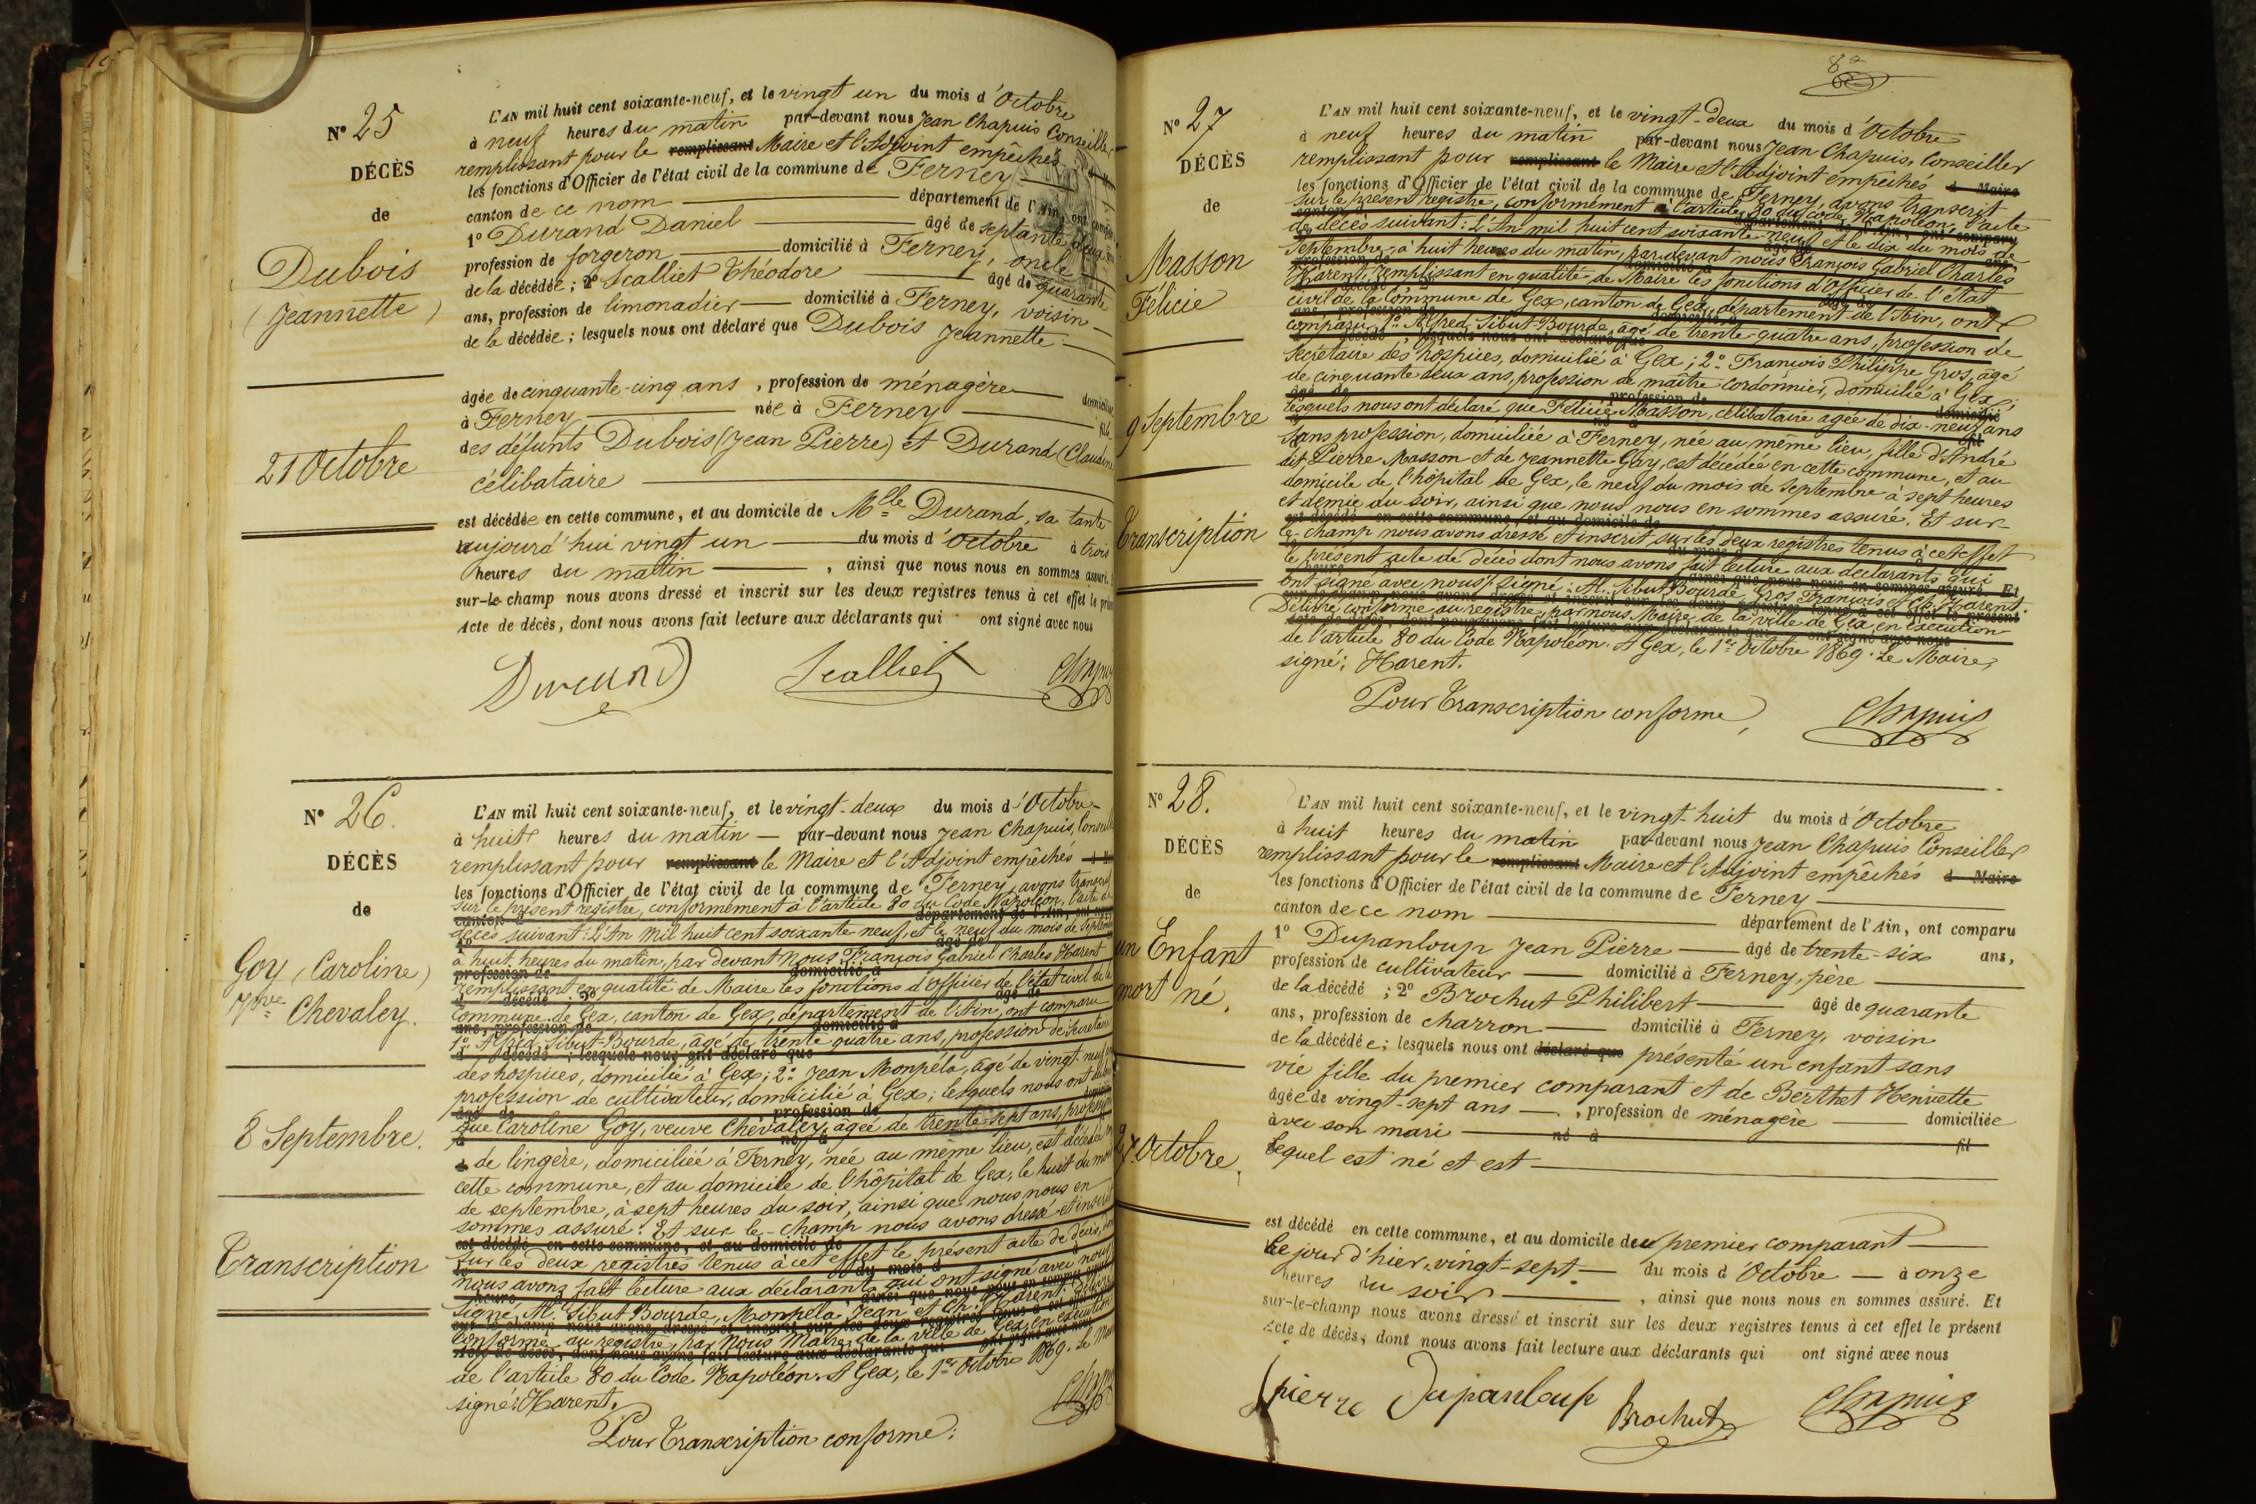 N° 25
DÉCÈS
de
Dubois
(Jeannette)
21 Octobre
L'AN mil huit cent soixante-neuf, et le vingt un du mois d'Octobre
à neuf heures du matin par-devant nous Jean Chapuis Conseiller
remplissant pour le remplissant Maire et l'Adjoint empêchés
les fonctions d'Officier de l'état civil de la commune de Ferney
canton de ce nom département de l'Ain, ont comparu
1° Durand Daniel âgé de septante deux ans
profession de forgeron domicilié à Ferney, oncle
de la décédée ; 2° Scalliet Théodore âgé de quarante
ans, profession de limonadier domicilié à Ferney, voisin
de la décédée ; lesquels nous ont déclaré que Dubois Jeannette
âgée de cinquante-cinq ans , profession de ménagère domiciliée
à Ferney née à Ferney fille
des défunts Dubois (Jean Pierre) et Durand (Claudine
célibataire
est décédée en cette commune, et au domicile de Mlle Durand, sa tante
aujourd'hui vingt un du mois d'Octobre à trois
heures du matin , ainsi que nous nous en sommes assuré.
sur-le-champ nous avons dressé et inscrit sur les deux registres tenus à cet effet le présent
Acte de décès, dont nous avons fait lecture aux déclarants qui ont signé avec nous
Durand Scalliet Chapuis
N° 26.
DÉCÈS
de
Goy (Caroline)
Vve Chevaley.
8 Septembre.
Transcription
L'AN mil huit cent soixante-neuf, et le vingt-deux du mois d'Octobre
à huit heures du matin par-devant nous Jean Chapuis, Conseiller
remplissant pour remplissant le Maire et l'Adjoint empêchés
les fonctions d'Officier de l'état civil de la commune de Ferney, avons transcrit
sur le présent registre, conformément à l'article 80 du Code Napoléon, l'acte de
décès suivant : L'An mil huit cent soixante-neuf, et le neuf du mois de Septembre
à huit heures du matin, par devant nous François Gabriel Charles Harent
remplissant en qualité de Maire les fonctions d'officier de l'état civil de la
commune de Gex, canton de Gex, département de l'Ain, ont comparu
1° Alfred Sibut-Bourde, âgé de trente quatre ans, profession de Secrétaire
des hospices, domicilié à Gex; 2° Jean Monpéla, âgé de vingt-neuf
profession de cultivateur, domicilié à Gex; lesquels nous ont déclaré
que Caroline Goy, veuve Chevaley, agée de trente-sept ans, profession
de lingère, domiciliée à Ferney, née au même lieu, est décédée en
cette commune, et au domicile de l'hôpital de Gex, le huit du mois
de septembre, à sept heures du soir, ainsi que nous nous en
sommes assuré. Et sur le-champ nous avons dressé et inscrit
sur les deux registres tenus à cet effet le présent acte de décès, dont
nous avons fait lecture aux déclarants qui ont signé avec nous
Signé, Al. Sibut Bourde, Monpela Jean et Ch. Harent.
conforme au registre, par Nous Maire de la ville de Gex, en exécution
de l'article 80 du Code Napoléon. A Gex, le 1er Octobre 1869. Le Maire
signé: Harent.
Pour Transcription conforme: Chapuis
82
N° 27
DÉCÈS
de
Masson
Félicie
9 Septembre
Transcription
L'AN mil huit cent soixante-neuf, et le vingt-deux du mois d'Octobre
à neuf heures du matin par-devant nous Jean Chapuis, Conseiller
remplissant pour remplissant le Maire et l'Adjoint empêchés d Maire
les fonctions d'Officier de l'état civil de la commune de Ferney, avons transcrit
sur le présent registre, conformément à l'article 80 du code Napoléon, l'acte
de décès suivant : L'An mil huit cent soixante-neuf et le dix du mois de
Septembre à huit heures du matin, par devant nous François Gabriel Charles
Harent, remplissant en qualité de Maire les fonctions d'officier de l'état
civil de la Commune de Gex, canton de Gex, département de l'Ain, ont
comparu 1° Alfred Sibut-Bourde, âgé de trente-quatre ans, profession de
secrétaire des hospices, domicilié à Gex; 2° François Philippe Gros, âgé
de cinquante deux ans, profession de maître cordonnier, domicilié à Gex;
lesquels nous ont déclaré que Félicie Masson, célibataire agée de dix-neuf ans
sans profession, domiciliée à Ferney, née au même lieu, fille d'André
dit Pierre Masson et de Jeannette Goy, est décédée en cette commune, et au
domicile de l'hôpital de Gex, le neuf du mois de Septembre à sept heures
et demie du soir, ainsi que nous nous en sommes assuré. Et sur-
le-champ nous avons dressé et inscrit sur les deux registres tenus à cet effet
le présent acte de décès dont nous avons fait lecture aux déclarants qui
ont signé avec nous, signé : Al. Sibut Bourde, Gros François et Ch. Harent.
Délivré conforme au registre, par nous Maire de la ville de Gex en exécution
de l'article 80 du Code Napoléon. A Gex, le 1er Octobre 1869. Le Maire,
signé: Harent.
Pour Transcription conforme, Chapuis
N° 28.
DÉCÈS
de
un Enfant
mort né,
27 Octobre,
L'AN mil huit cent soixante-neuf, et le vingt-huit du mois d'Octobre
à huit heures du matin par-devant nous Jean Chapuis Conseiller
remplissant pour le remplissant Maire et l'Adjoint empêchés d Maire
les fonctions d'Officier de l'état civil de la commune de Ferney
canton de ce nom département de l'Ain, ont comparu
1° Dupanloup Jean Pierre âgé de trente-six ans,
profession de cultivateur domicilié à Ferney, père
de la décédé ; 2° Brochut Philibert âgé de quarante
ans, profession de charron domicilié à Ferney, voisin
de la décédée ; lesquels nous ont déclaré que présenté un enfant sans
vie fille du premier comparant et de Berthet Henriette
âgée de vingt-sept ans , profession de ménagère domiciliée
avec son mari né à fil
Lequel est né et est
est décédé en cette commune, et au domicile du premier comparant
Le jour d'hier, vingt-sept du mois d'Octobre à onze
heures du soir , ainsi que nous nous en sommes assuré. Et
sur-le-champ nous avons dressé et inscrit sur les deux registres tenus à cet effet le présent
Acte de décès, dont nous avons fait lecture aux déclarants qui ont signé avec nous
pierre Dupanloup Brochut Chapuis